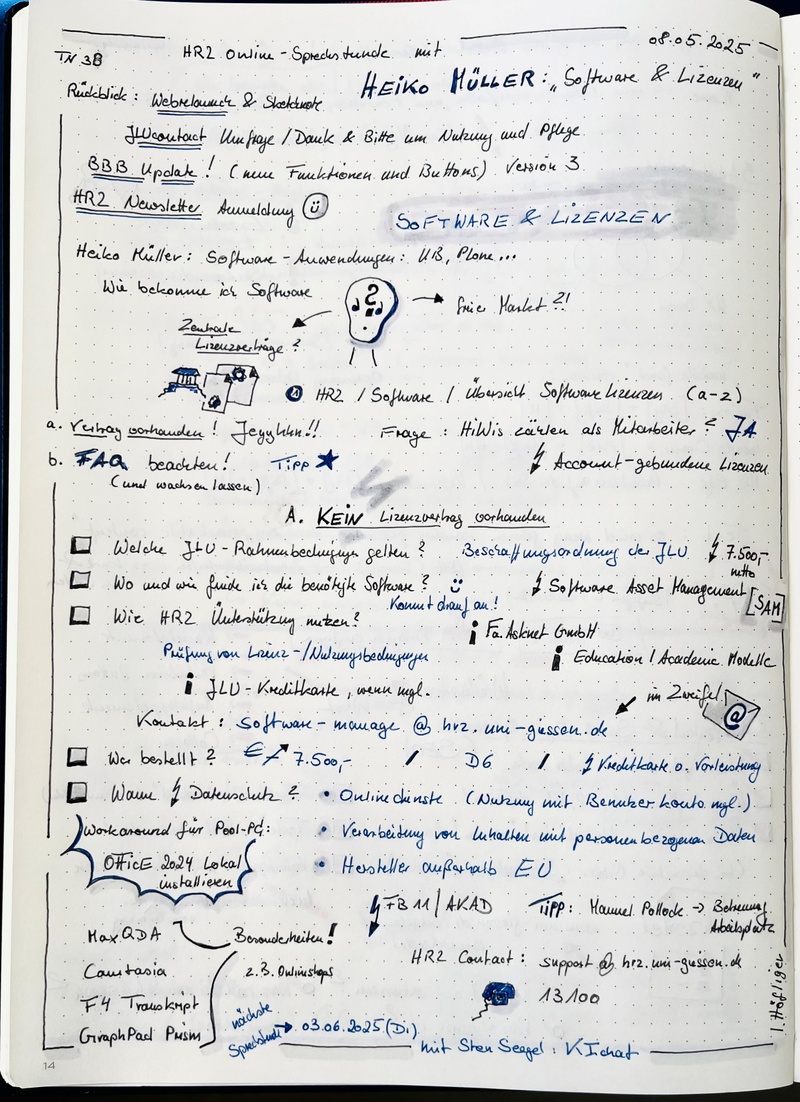 TN 38 HRZ Online-Sprechstunde mit 08.05.2025
HEIKO MÜLLER: „Software & Lizenzen"
Rückblick: Webrelaunch & Sketchnote
JLUcontact Umfrage / Dank & Bitte um Nutzung und Pflege
BBB Update! (neue Funktionen und Buttons) Version 3
HRZ Newsletter Anmeldung
SOFTWARE & LIZENZEN
Heiko Müller: Software-Anwendungen: UB, Plone...
Wie bekomme ich Software
?
freier Markt?!
Zentrale
Lizenzverträge?
HRZ / Software / Übersicht Softwarelizenzen (a-z)
a. Vertrag vorhanden! Jeyyhhh!! Frage: HiWis zählen als Mitarbeiter? JA
b. FAQ beachten! TIPP Account-gebundene Lizenzen
(und wachsen lassen)
A. KEIN Lizenzvertrag vorhanden
Welche JLU-Rahmenbedingungen gelten? Beschaffungsordnung der JLU 7.500,-
netto
Wo und wie finde ich die benötigte Software? Software Asset Management
[SAM]
Kommt drauf an!
Wie HRZ Unterstützung nutzen?
i Fa. Asknet GmbH
Prüfung von Lizenz-/Nutzungsbedingungen i Education / Academic Modelle
i JLU-Kreditkarte, wenn mgl.
im Zweifel
@
Kontakt: software-manage @ hrz.uni-giessen.de
Wer bestellt? € 7.500,- / D6 / Kreditkarte o. Vorleistung
Wann Datenschutz? • Onlinedienste (Nutzung mit Benutzerkonto mgl.)
Workaround für Pool-PC: • Verarbeitung von Inhalten mit personenbezogenen Daten
OFFICE 2024 Lokal
installieren
• Hersteller außerhalb EU
FB 11 / AKAD TIPP: Manuel Pollock → Betreuung
Arbeitsplatz
MaxQDA Besonderheiten!
Camtasia z.B. Onlineshops
HRZ Contact: support @ hrz.uni-giessen.de
F4 Transkript
13100
GraphPad Prism
nächste
Sprechstunde 03.06.2025 (Di)
mit Sten Seegel: KIchat
14